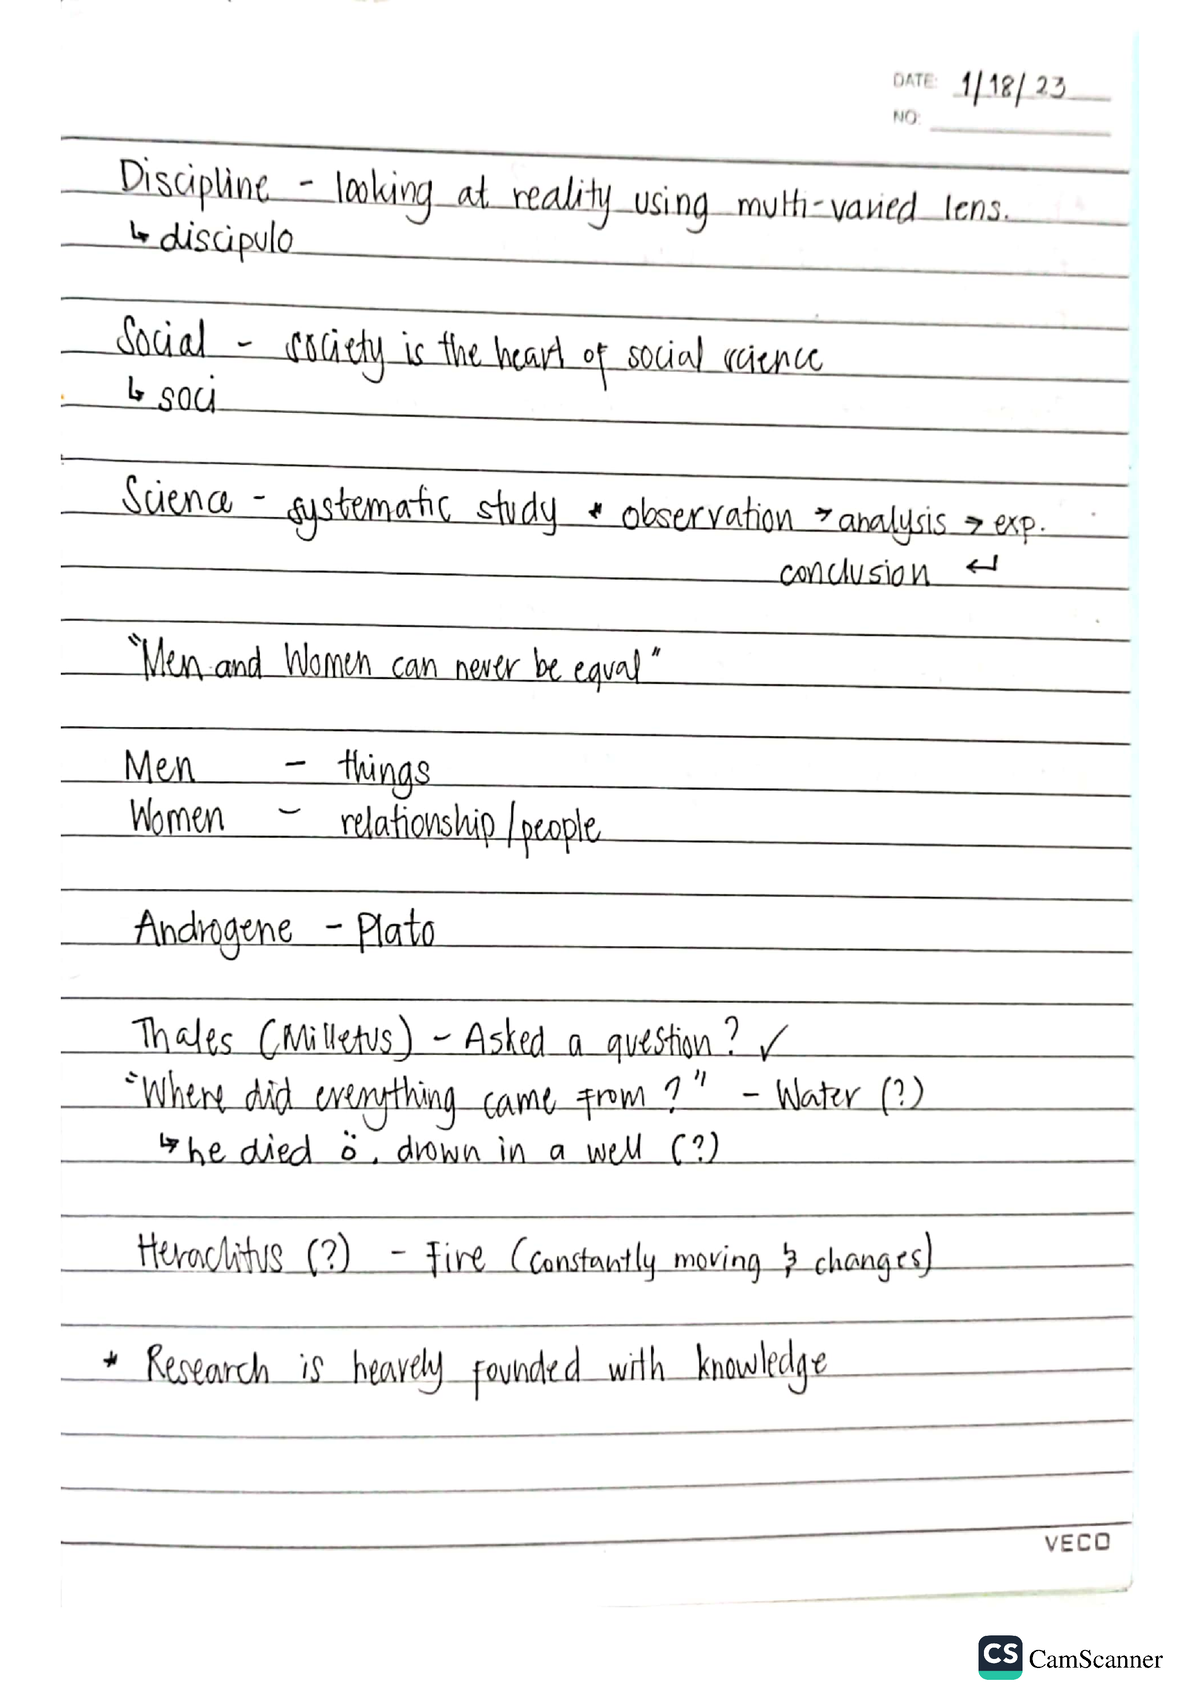 DATE: 1/18/23
NO:
Discipline - looking at reality using multi-varied lens.
↳ discipulo
Social - society is the heart of social science
↳ soci
Science - systematic study * observation → analysis → exp.
conclusion ↵
"Men and Women can never be equal"
Men - things
Women - relationship/people
Androgene - Plato
Thales (Milletus) - Asked a question? ✓
"Where did everything came from?" - Water (?)
↳ he died ö. drown in a well (?)
Heraclitus (?) - Fire (constantly moving & changes)
* Research is heavely founded with knowledge
VECO
CS CamScanner